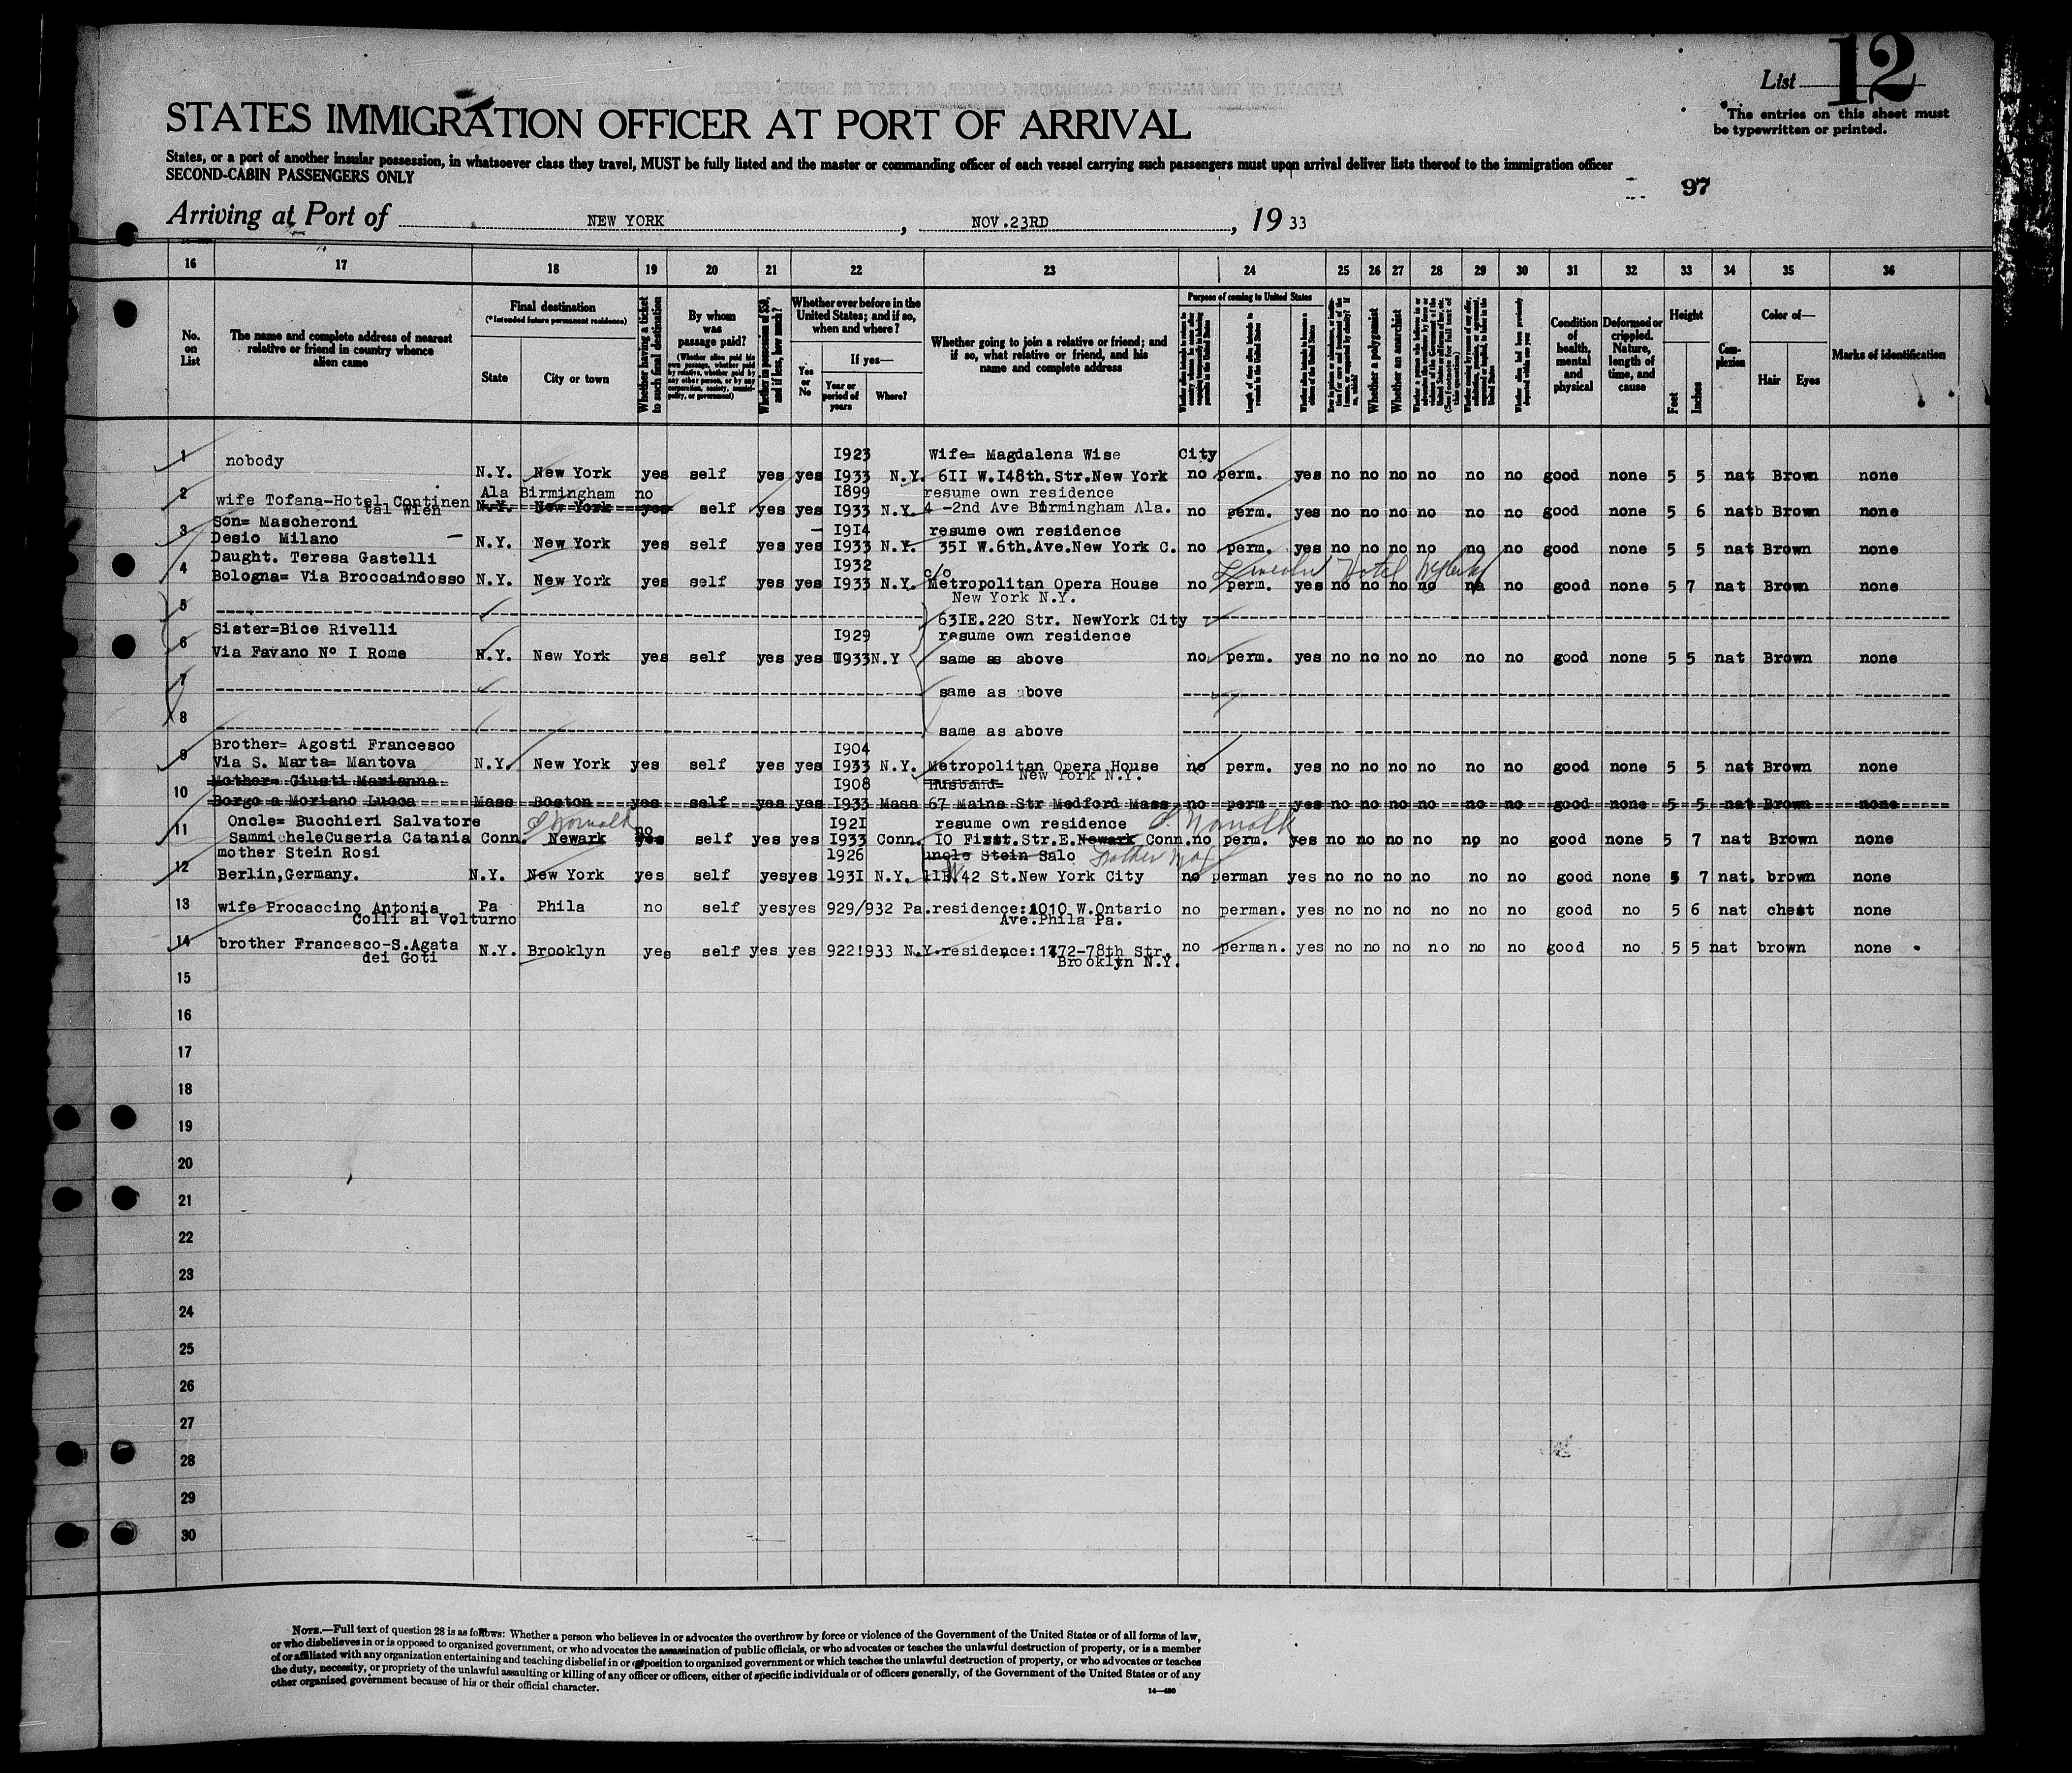 List 12
STATES IMMIGRATION OFFICER AT PORT OF ARRIVAL
The entries on this sheet must
be typewritten or printed.
States, or a port of another insular possession, in whatsoever class they travel, MUST be fully listed and the master or commanding officer of each vessel carrying such passengers must upon arrival deliver lists thereof to the immigration officer
SECOND-CABIN PASSENGERS ONLY
97
Arriving at Port of NEW YORK, NOV.23RD, 19 33
16 17 18 19 20 21 22 23 24 25 26 27 28 29 30 31 32 33 34 35 36
No. on List
The name and complete address of nearest relative or friend in country whence alien came
Final destination
(*Intended future permanent residence)
State
City or town
Whether having a ticket to such final destination
By whom was passage paid?
(Whether alien paid his own passage, whether paid by relative, whether paid by any other person, or by any corporation, society, municipality, or government)
Whether in possession of $50, and if less, how much?
Whether ever before in the United States; and if so, when and where?
Yes or No
If yes—
Year or period of years
Where?
Whether going to join a relative or friend; and if so, what relative or friend, and his name and complete address
Purpose of coming to United States
Whether a polygamist
Whether an anarchist
Condition of health, mental and physical
Deformed or crippled. Nature, length of time, and cause
Height
Feet
Inches
Complexion
Color of—
Hair
Eyes
Marks of identification
1 nobody I923 Wife= Magdalena Wise City
N.Y. New York yes self yes yes I933 N.Y. 6II W.I48th.Str.New York no perm. yes no no no no no no good none 5 5 nat Brown none
2 Ala Birmingham no I899 resume own residence
wife Tofana-Hotel Continen N.Y. New York yes self yes yes I933 N.Y. 4 -2nd Ave Birmingham Ala. no perm. yes no no no no no no good none 5 6 nat b Brown none
tal Wien
3 Son= Mascheroni I9I4 resume own residence
Desio Milano N.Y. New York yes self yes yes I933 N.Y. 35I W.6th.Ave.New York C. no perm. yes no no no no no no good none 5 5 nat Brown none
4 Daught. Teresa Gastelli I932 c/o Lincoln Hotel
Bologna= Via Broccaindosso N.Y. New York yes self yes yes I933 N.Y. Metropolitan Opera House no perm. yes no no no no no no good none 5 7 nat Brown none
New York N.Y.
5 63IE.220 Str. NewYork City
6 Sister=Bice Rivelli I929 resume own residence
Via Favano Nº I Rome N.Y. New York yes self yes yes I933 N.Y same as above no perm. yes no no no no no no good none 5 5 nat Brown none
7 same as above
8 same as above
9 Brother= Agosti Francesco I904
Via S. Marta= Mantova N.Y. New York yes self yes yes I933 N.Y. Metropolitan Opera House no perm. yes no no no no no no good none 5 5 nat Brown none
New York N.Y.
10 Mother= Giusti Marianna I908 Husband=
Borgo a Moriano Lucca Mass Boston yes self yes yes I933 Mass 67 Mains Str Medford Mass no perm yes no no no no no no good none 5 5 nat Brown none
11 Oncle= Bucchieri Salvatore S. Norwalk no I92I resume own residence S. Norwalk
SammicheleCuseria Catania Conn. Newark yes self yes yes I933 Conn. IO First.Str.E.Newark Conn. no perm. yes no no no no no no good none 5 7 nat Brown none
12 mother Stein Rosi 1926 uncle Stein Salo
Berlin,Germany. N.Y. New York yes self yes yes 193I N.Y. 42 St.New York City no perman yes no no no no no no good none 5 7 nat. brown none
13 wife Procaccino Antonia Pa Phila no self yes yes 929/932 Pa. residence:1010 W.Ontario no perman. yes no no no no no no good no 5 6 nat chest none
Colli al Volturno Ave.Phila Pa.
14 brother Francesco-S.Agata N.Y. Brooklyn yes self yes yes 922!933 N.Y. residence:1772-78th Str. no perman. yes no no no no no no good no 5 5 nat brown none
dei Goti Brooklyn N.Y.
15
16
17
18
19
20
21
22
23
24
25
26
27
28
29
30
NOTE.—Full text of question 28 is as follows: Whether a person who believes in or advocates the overthrow by force or violence of the Government of the United States or of all forms of law,
or who disbelieves in or is opposed to organized government, or who advocates the assassination of public officials, or who advocates or teaches the unlawful destruction of property, or is a member
of or affiliated with any organization entertaining and teaching disbelief in or opposition to organized government or which teaches the unlawful destruction of property, or who advocates or teaches
the duty, necessity, or propriety of the unlawful assaulting or killing of any officer or officers, either of specific individuals or of officers generally, of the Government of the United States or of any
other organized government because of his or their official character.
14—480